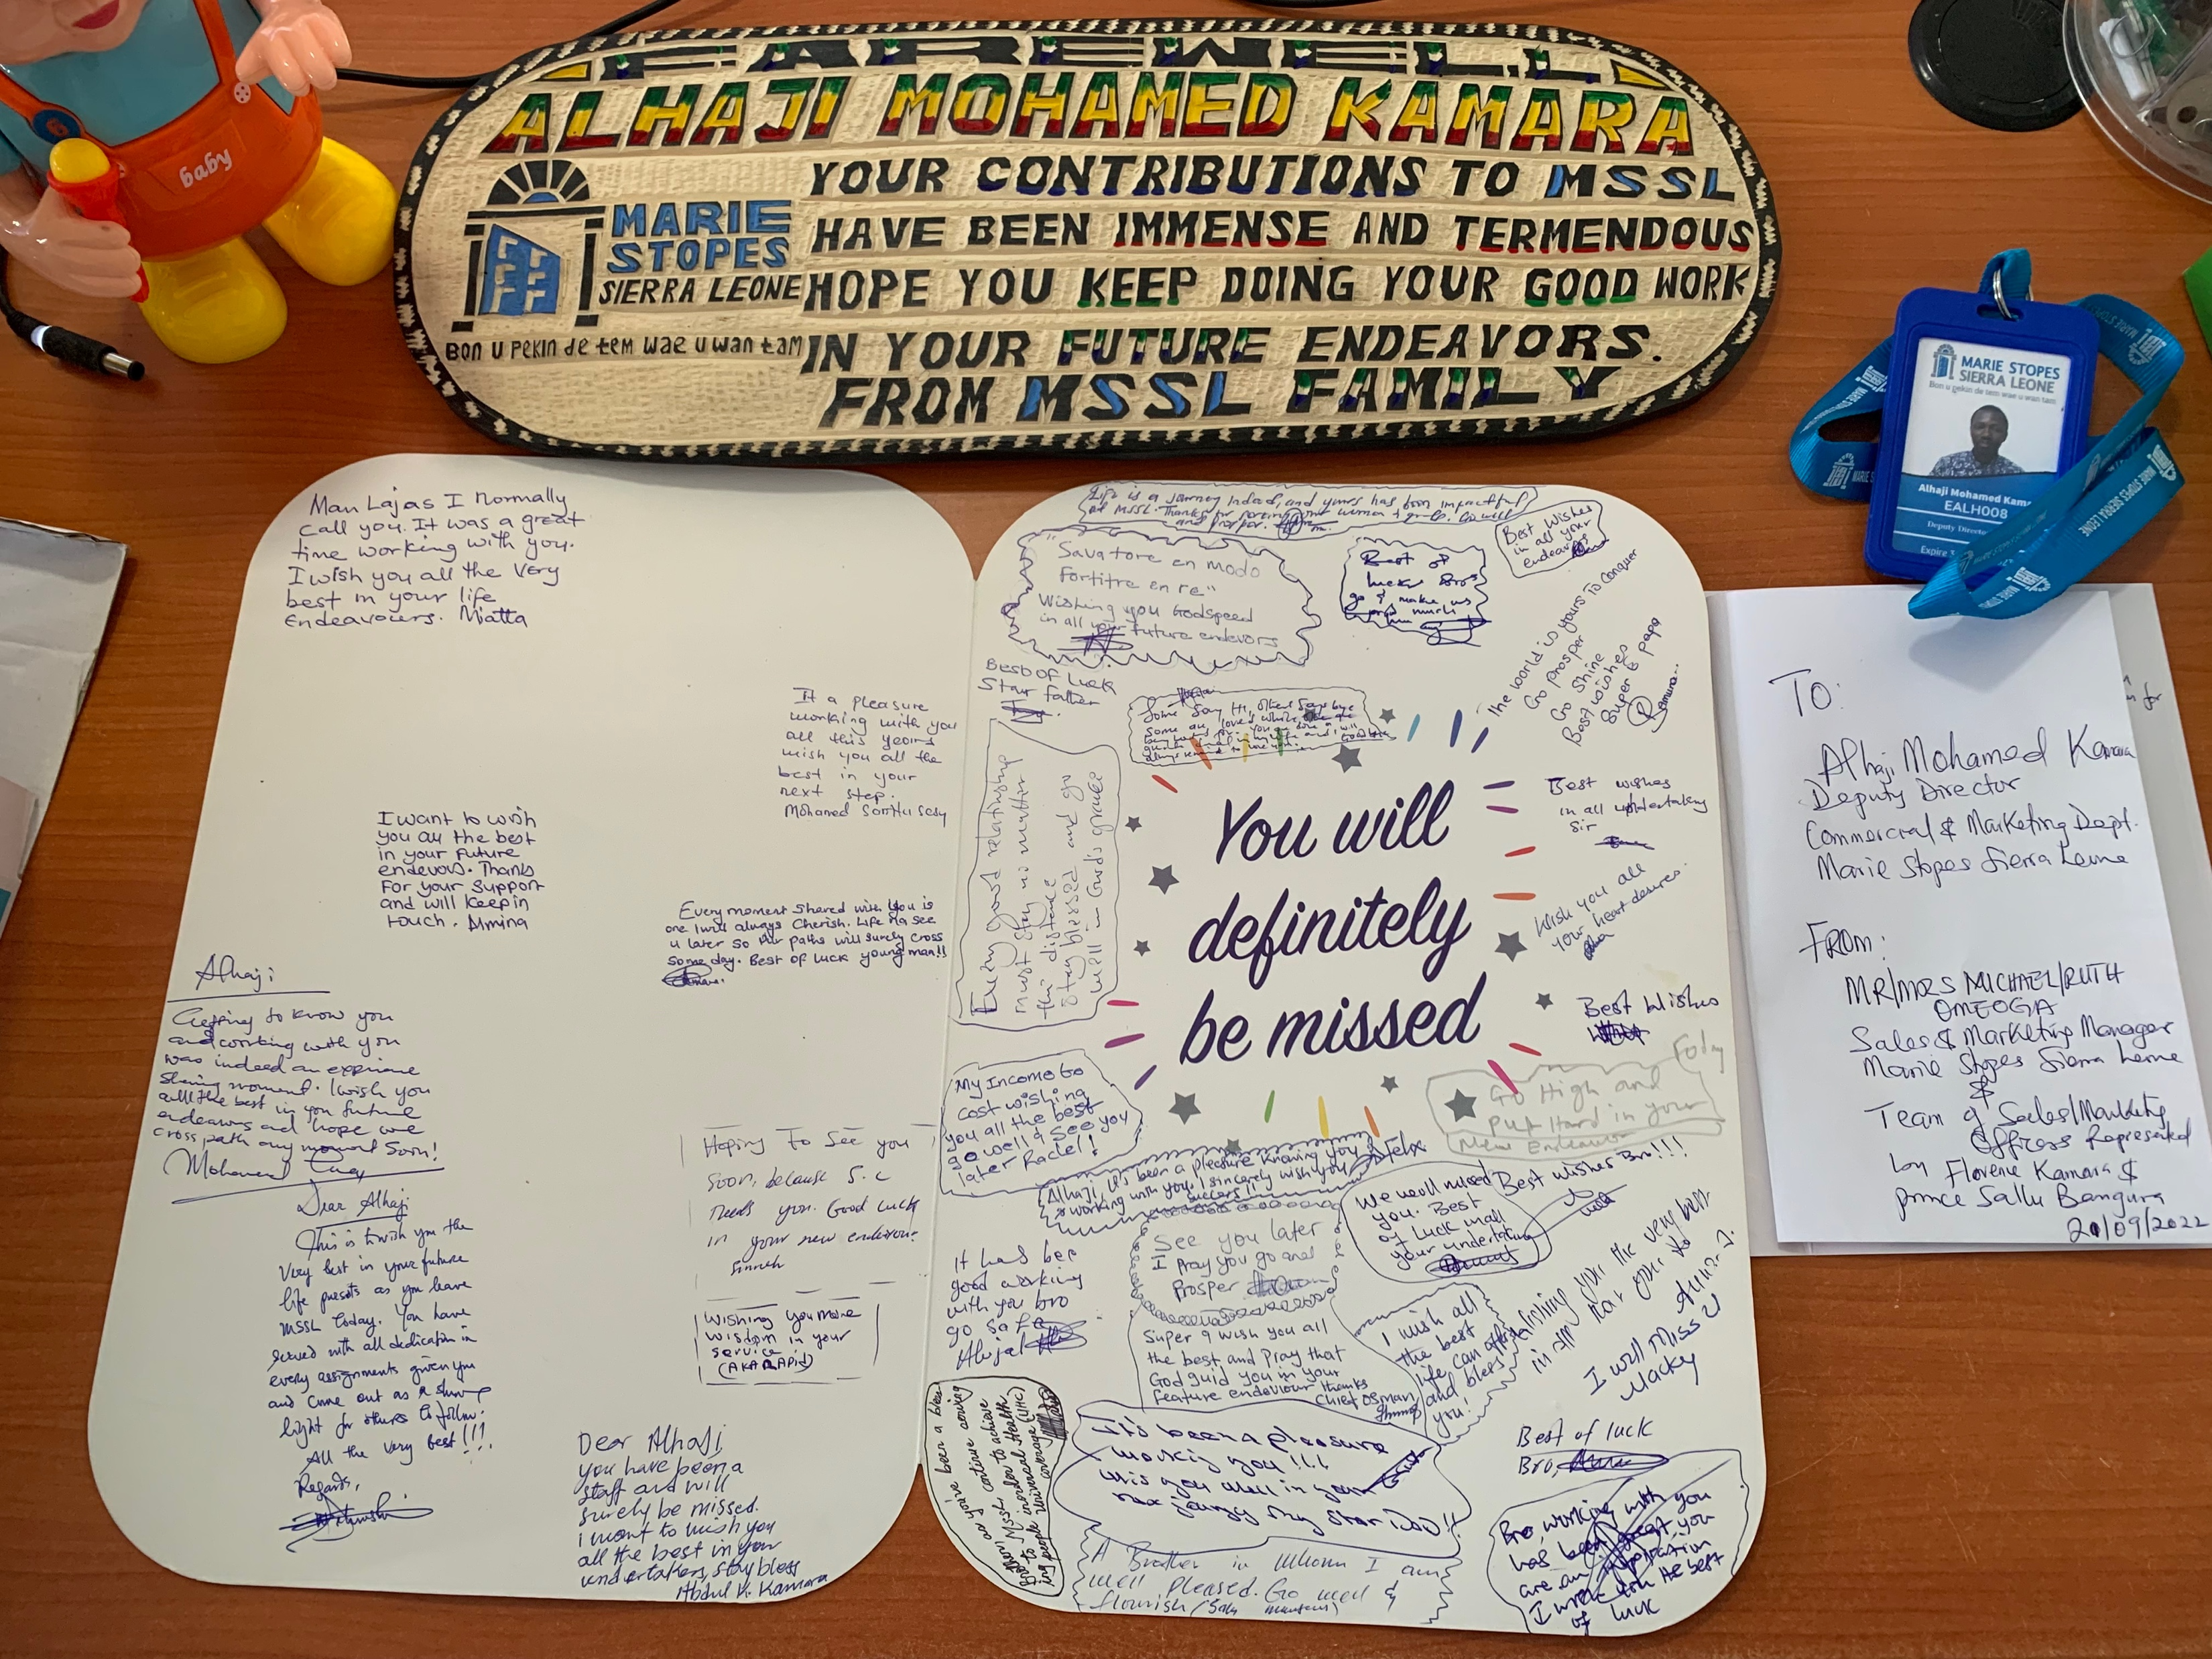 FAREWELL
ALHAJI MOHAMED KAMARA
YOUR CONTRIBUTIONS TO MSSL
HAVE BEEN IMMENSE AND TERMENDOUS
HOPE YOU KEEP DOING YOUR GOOD WORK
IN YOUR FUTURE ENDEAVORS.
FROM MSSL FAMILY
MARIE
STOPES
SIERRA LEONE
Bon u pekin de tem wae u wan tam
baby
MARIE STOPES
SIERRA LEONE
Bon u pekin de tem wae u wan tam
Alhaji Mohamed Kama
EALH008
Deputy Directo
Expire 3
Man Lajas I normally
call you. It was a great
time working with you.
I wish you all the very
best in your life
Endeavours. Miatta
It a pleasure
working with you
all this years
wish you all the
best in your
next step.
Mohamed
I want to wish
you all the best
in your future
endevors. Thanks
For your support
and will keep in
touch. Amina
Every moment shared with you is
one I will always Cherish. Life na see
u later so our paths will surely cross
some day. Best of luck young man!!
Alhaji
Getting to know you
and working with you
was indeed an
moment. I wish you
all the best in you future
endeavors and hope we
cross path any moment soon!
Mohamed
Dear Alhaji
This is to wish you the
very best in your future
life as you leave
MSSL today. You have
served with all dedication in
every assignments given you
and come out as a
light for others to follow.
All the very best!!!
Regards,
Hoping to see you
soon, because S.C
needs you. Good luck
in your new endeavour
Sinneh
Wishing you more
wisdom in your
service
(AKA RAPID)
Dear Alhaji
you have been a
staff and will
surely be missed.
i want to wish you
all the best in your
undertakers, stay bless
Abdul K. Kamara
Life is a journey indeed, and yours has been impactful
at MSSL. Thanks for women & girls. Go well
and prosper.
"Savatore en modo
Fortitre en re"
Wishing you Godspeed
in all your future endevors
Best of
luck Bros
go & make us
Best wishes
in all your
endeavors
The world is yours to conquer
Go prosper
Go shine
Best wishes
Super B papa
Best of Luck
Star father
Some say Hi, others say bye
Every good relationship
must stay no matter
the distance
Stay blessed and go
well in God's grace
You will
definitely
be missed
Best wishes
in all undertaking
Sir
Wish you all
your heart desires.
Best Wishes
Go High and
Put Hard in your
New Endeavor
Foday
My Income to
cost wishing
you all the best
go well & see you
later Rachel!
Alhaji, it's been a pleasure knowing you
& working with you. I sincerely wish you
success!!
Felix
We will missed
you. Best
of luck in all
your undertaking
Best wishes Bro!!!
See you later
I pray you go and
Prosper
It has bee
good working
with you bro
go safe
Super 9 wish you all
the best and pray that
God guid you in your
feature endeviour thanks
Chief Osman
I wish all
the best
life can offer
and bless
you!
wishing you the very best
in all that you do
I will miss u
Macky
Best of luck
Bro,
It's been a pleasure
working you!!!
wis you well in your
nex journey my star
A Brother in whom I am
well pleased. Go well &
flourish
Bro, working with you
has been great, you
are an inspiration
I wish you the best
of luck
TO:
Alhaji Mohamed Kamara
Deputy Director
Commercial & Marketing Dept.
Marie Stopes Sierra Leone
FROM:
MR/MRS MICHAEL/RUTH
OMEOGA
Sales & Marketing Manager
Marie Stopes Sierra Leone
&
Team of Sales/Marketing
Officers Represented
by Florence Kamara &
Prince Sallu Bangura
20/09/2022